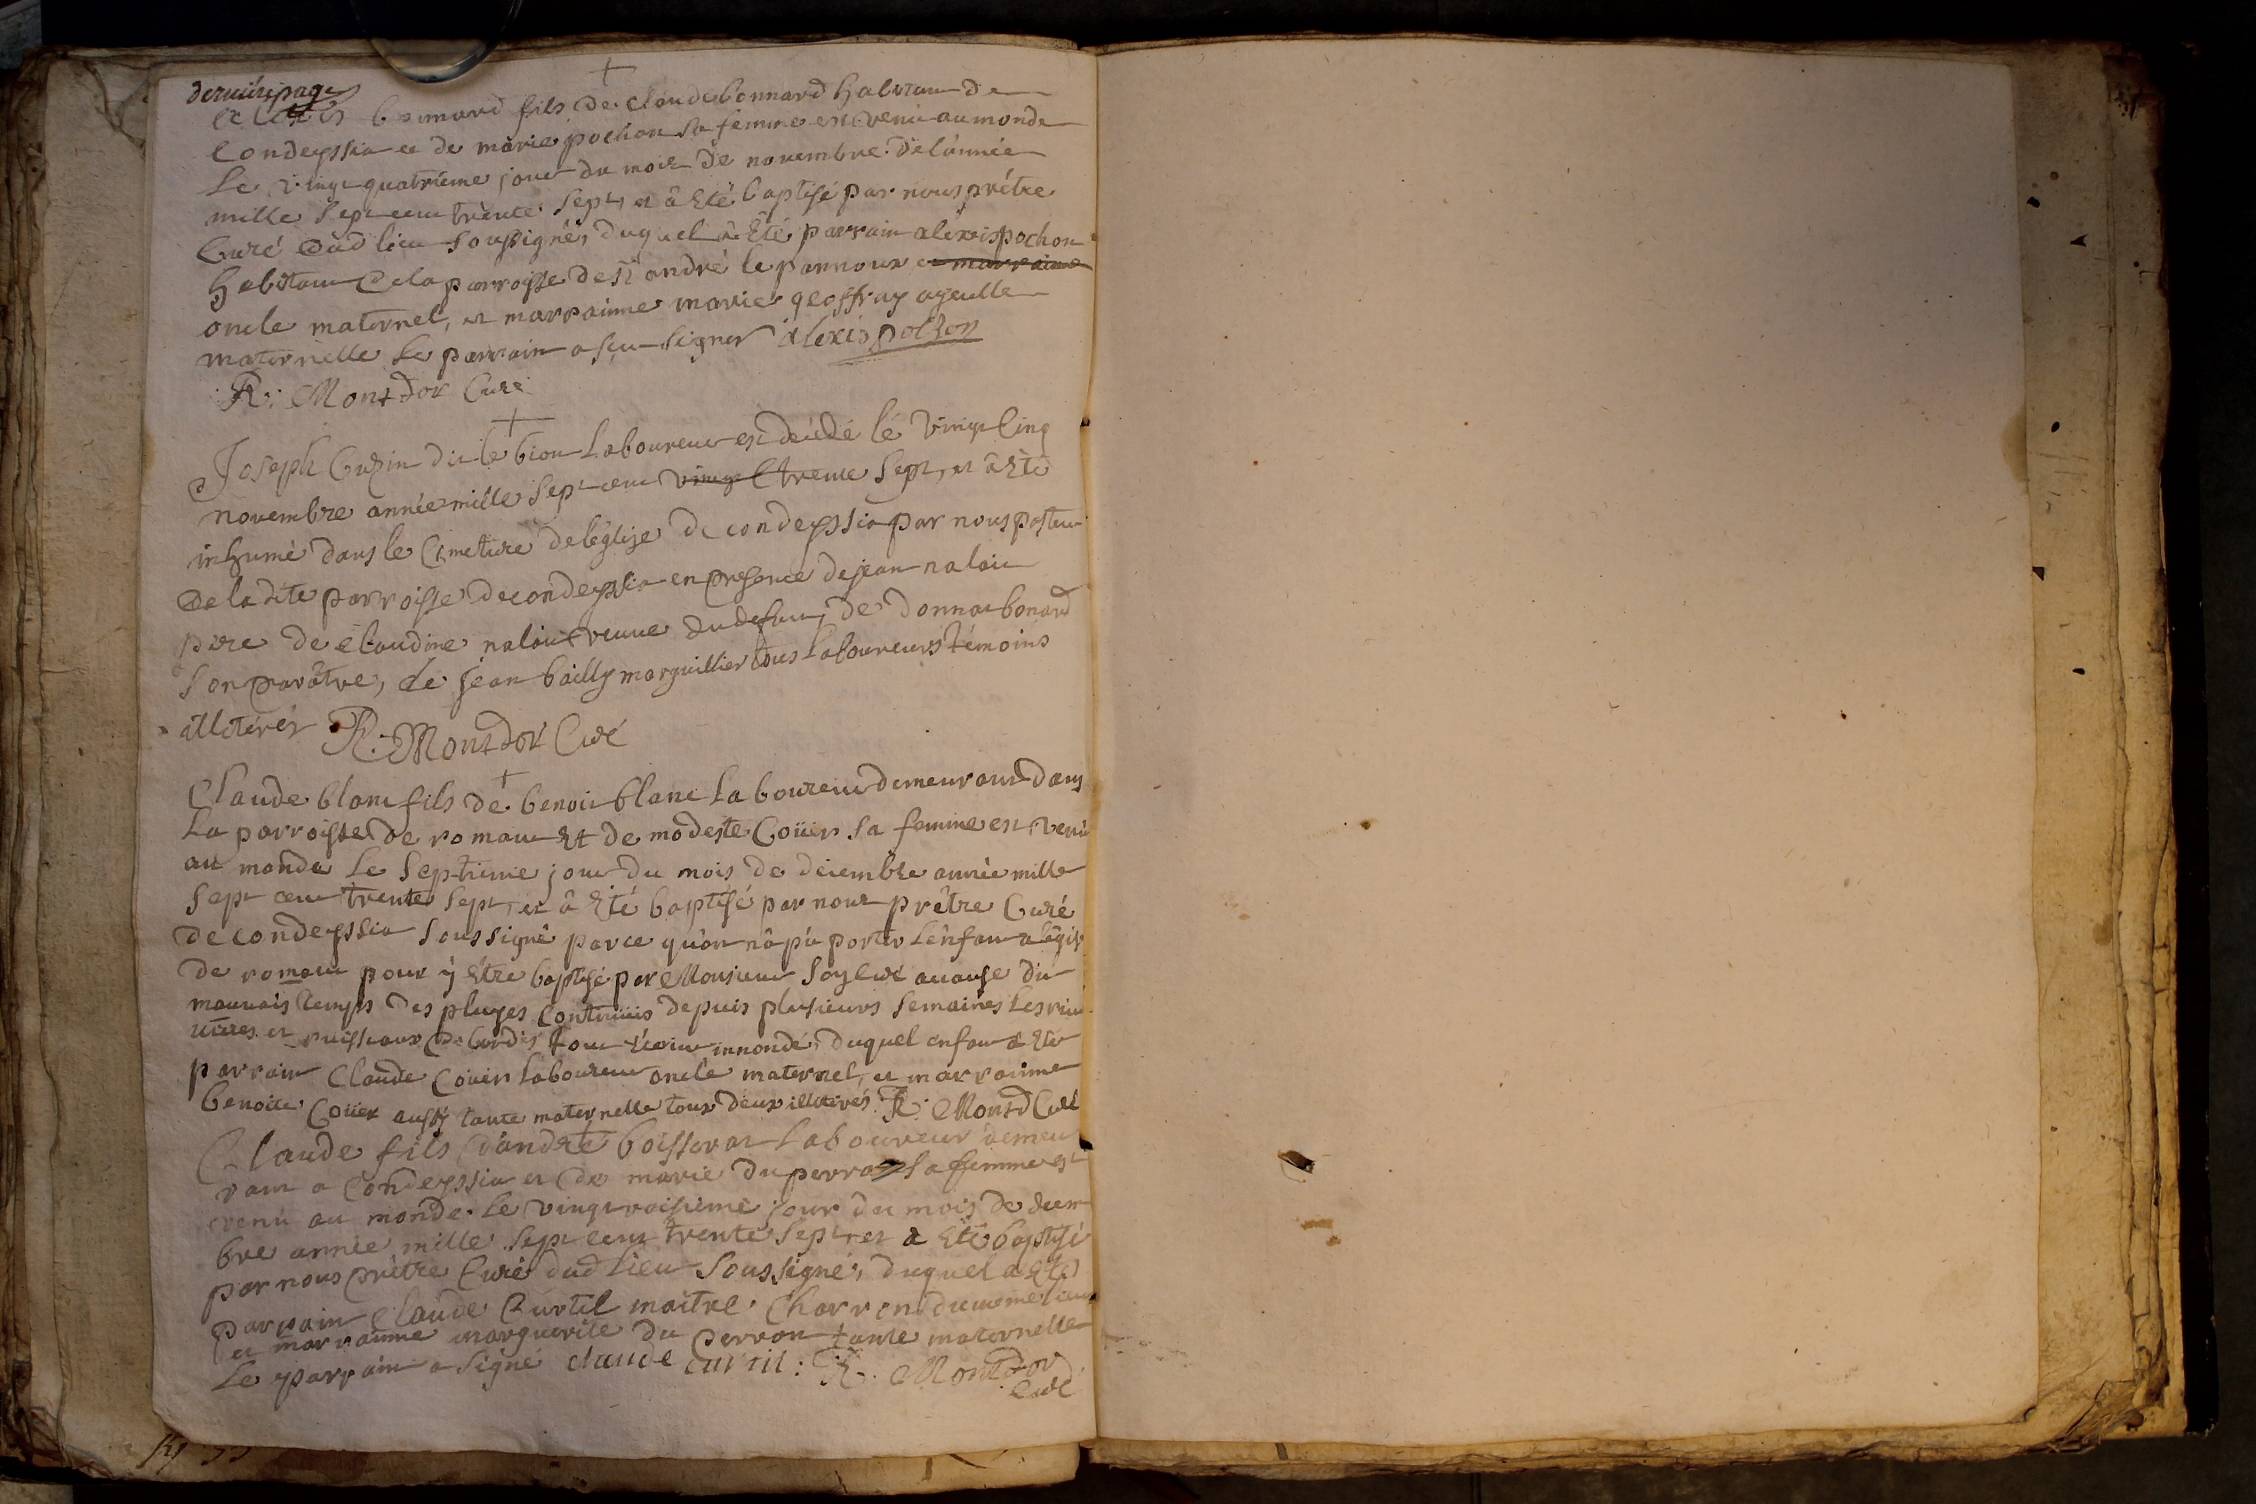 dernière page
Alexis bonnard fils de claude bonnard habitant de
Condeyssia et de marie pochon sa femme est venu au monde
le vingt quatrième jour du mois de novembre de l'année
mille sept cent trente sept, et â Eté baptisé par nous prétre
Curé dud lieu soussigné, duquel a Eté parrain alexis pochon
habitant de la parroisse de st andré le pannoux et marraine
oncle maternel, et marrainne marie geoffray ayeulle
maternelle le parrain a sçu signer alexis pochon
R: Montdor Curé
Joseph Cuzin dit le bion Laboureur est décédé le vingt Cinq
novembre année mille sept cent vingt trente sept, et â Eté
inhumé dans le Cimetière de l'église de condeyssia par nous pasteur
de la dite parroisse de condeyssia en presence de jean nalait
père de claudine nalait veuve du defunt, de donnat bonard
son parâtre, de jean bailly marguillier tous Laboureurs témoins
illiterés R. Montdor Curé
Claude blanc fils de benoit blanc Laboureur demeurant dans
La parroisse de roman Et de modeste Coüier sa femme est venu
au monde le septième jour du mois de decembre année mille
sept cent trente sept, et â Eté baptisé par nous prêtre Curé
de condeyssia soussigné parce qu'on n'â pû porter l'enfant a l'églis
de roman pour ÿ être baptisé par Monsieur Curé a cause du
mauvais temps des pluyes continüis depuis plusieurs semaines les riui
uieres et ruisseaux debordés tout innondé, duquel enfant a Eté
parrain Claude Coüier Laboureur oncle maternel, et marrainne
benoite Coüier aussy tante maternelle tous deux illiterés. R: Montd Curé
Claude fils d'andré boisserat Laboureur demeu
rant a Condeyssia et de marie du perron sa femme est
venu au monde le vingt roisième jour du mois de decem
bre année mille sept cent trente sept et a Eté baptisé
par nous prêtre Curé dud lieu soussigné, duquel a Eté
parrain Claude Curtil maitre Charron du même lieu
et marrainne marguerite du perron tante maternelle
Le parrain a signé claude curtil: R. Montdor
Curé